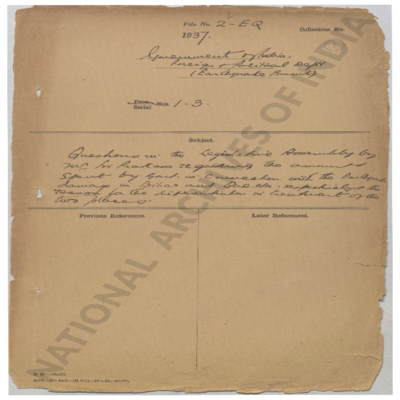 File No. 2-EQ
Collection No.
1937.
Government of India.
Foreign & Political Dept
(Earthquake Branch)
Serial Nos. 1-3.
Subject.
Questions in the Legislative Assembly by
Mr. Sri Prakasa regarding the amounts
spent by Govt. in connection with the Earthquake
damage in Bihar and Quetta respectively & the
reason for the differentiation in treatment of the
two places.
Previous References.
Later References.
NATIONAL ARCHIVES OF INDIA